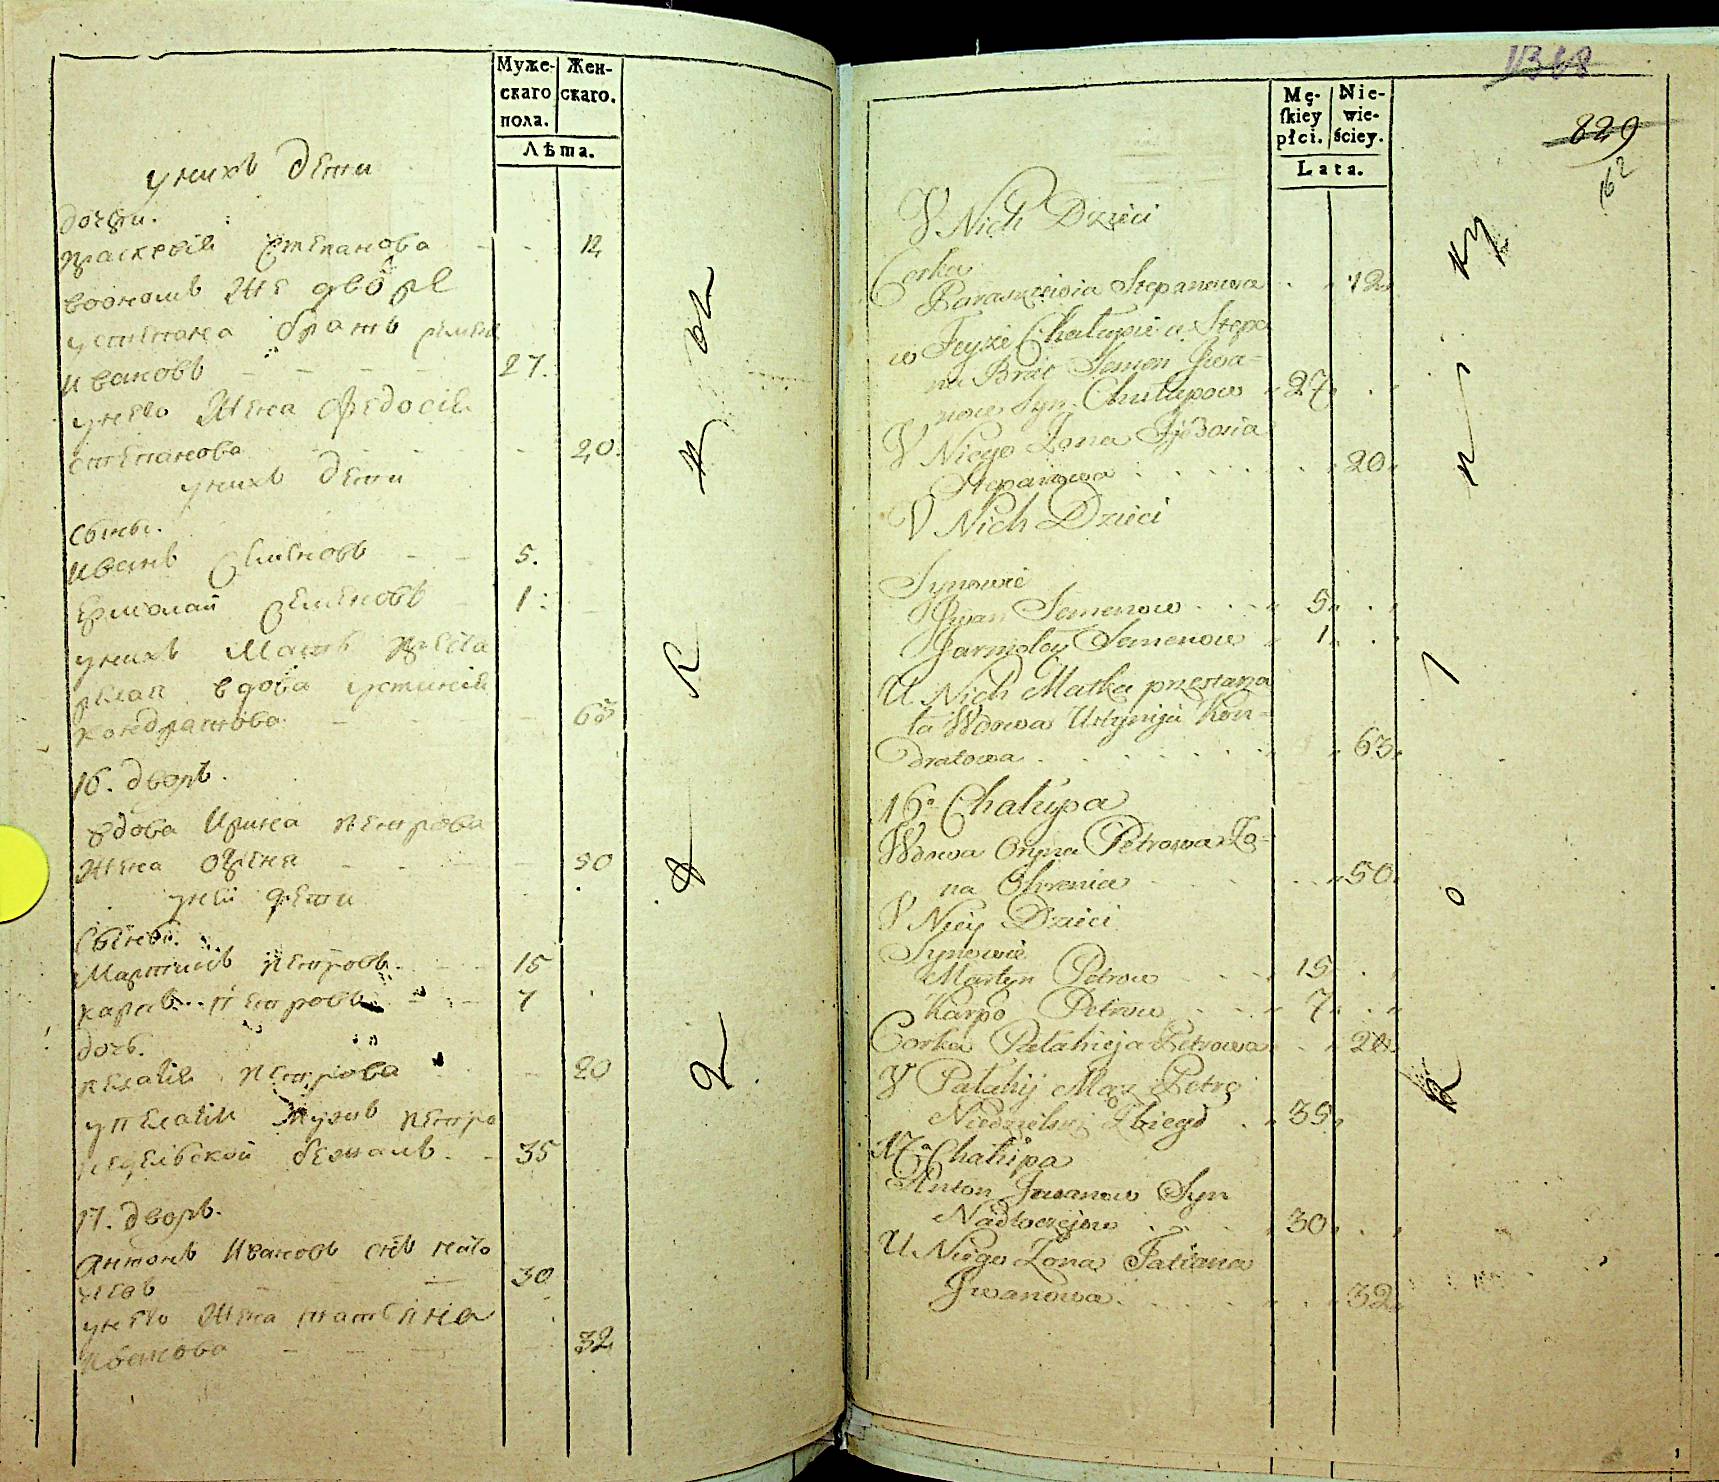 Муже-
скаго
пола.
Жен-
скаго.
Лѣта.
унихъ дети
дочери.
праскевiя Степанова 12
воономъ же дворе
устепана братъ
ивановъ 27.
унего жена федосiя
степанова 20.
унихъ дети
сыны.
иванъ Семеновъ 5.
ермолай семеновъ 1:
унихъ мать
вдова устинiя
кондратова 63
16. дворъ.
вдова ирина петрова
жена 50
уней дети
сыновя.
мартинъ петровъ 15
карпъ петровъ 7
дочь.
пелагiя петрова 20
упелагiи мужъ петро
35
17. дворъ.
антонъ ивановъ снъ
30
унего жена татiяна
иванова 32
1368
829
162
Mę-
skiey
płci.
Nie-
wie-
ściey.
Lata.
V Nich Dzieci
Corka
Paraszcewia Stepanowa 12
w Teyże Chałupie u Stepa
na Brat Semen Jwa-
now Syn Chałupow 27
V Niego Zona Fjedosia
Stepanowa 20
V Nich Dzieci
Synowie
Jwan Semenow 5
Jarmołey Semenow 1
U Nich Matka
ta Wdowa Ustynija Kon-
dratowa 63
16a Chałupa
Wdowa Oryna Petrowa Żo-
na 50
V Niey Dzieci
Synowie
Martyn Petrow 15
Karpo Petrow 7
Corka Pałahieja Petrowa 20
V Pałahij Mąż Petro
Niedzielski Zbiegł 35
17a Chałupa
Anton Jwanow Syn
30
U Niego Zona Tatiana
Jwanowa 32